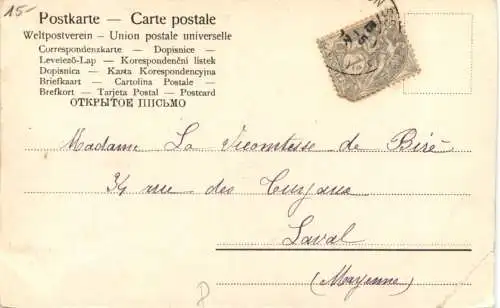 15-
Postkarte — Carte postale
Weltpostverein — Union postale universelle
Correspondenzkarte — Dopisnice —
Levelező-Lap — Korespondenční listek
Dopisnica — Karta Korespondencyjna
Briefkaart — Cartolina Postale —
Brefkort — Tarjeta Postal — Postcard
ОТКРЫТОЕ ПИСЬМО
Madame La Vicomtesse de Biré
34 rue des
Laval
(Mayenne)